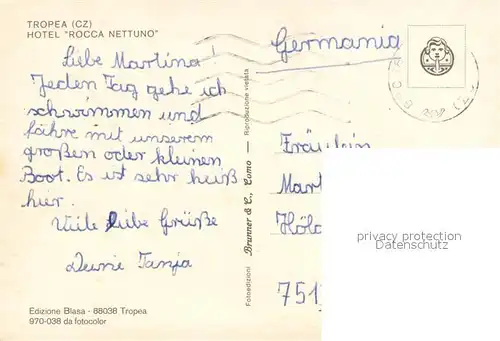 TROPEA (CZ)
HOTEL "ROCCA NETTUNO"
Liebe Martina!
Jeden Tag gehe ich
schwimmen und
fahre mit unserem
großen oder kleinen
Boot. Es ist sehr heiß
hier.
Viele liebe Grüße
Deine Tanja
Edizione Blasa - 88038 Tropea
970-038 da fotocolor
Fotoedizioni Brunner & C., Como — Riproduzione vietata
Germania
Fräulein
Mart
Höld
751
privacy protection
Datenschutz